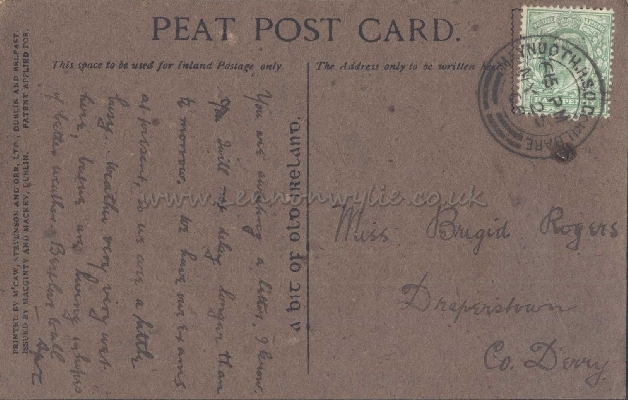 PEAT POST CARD.
This space to be used for Inland Postage only.
The Address only to be written here
PRINTED BY M'CAW, STEVENSON AND ORR, LTD., DUBLIN AND BELFAST.
ISSUED BY MACGINTY AND MACKEY, DUBLIN. PATENT APPLIED FOR.
A BIT OF OLD IRELAND.
You are awaiting a letter, I know.
You will not delay longer than
to-morrow. We have our exams
at present, so we are a little
busy. Weather very very wet
here, we are living in hopes
of better weather
MAYNOOTH.R.S.O.CO.KILDARE
www.Lennonwylie.co.uk
Miss Brigid Rogers
Draperstown
Co. Derry.